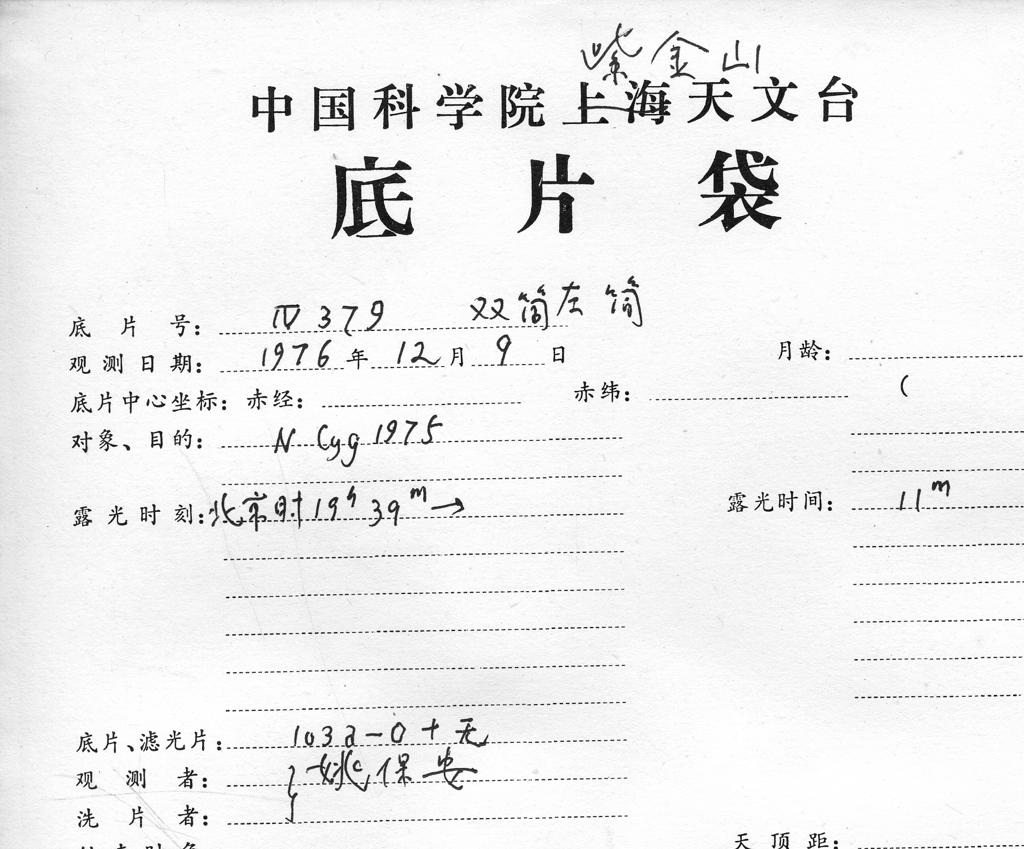 紫金山
中国科学院上海天文台
底片袋
底片号: Ⅳ 379 双筒左筒
观测日期: 1976年12月9日 月龄:
底片中心坐标: 赤经: 赤纬: (
对象、目的: N Cyg 1975
露光时刻: 北京时 19h 39m → 露光时间: 11m
底片、滤光片: 103a-O + 无
观测者: } 姚保安
洗片者:
天顶距: